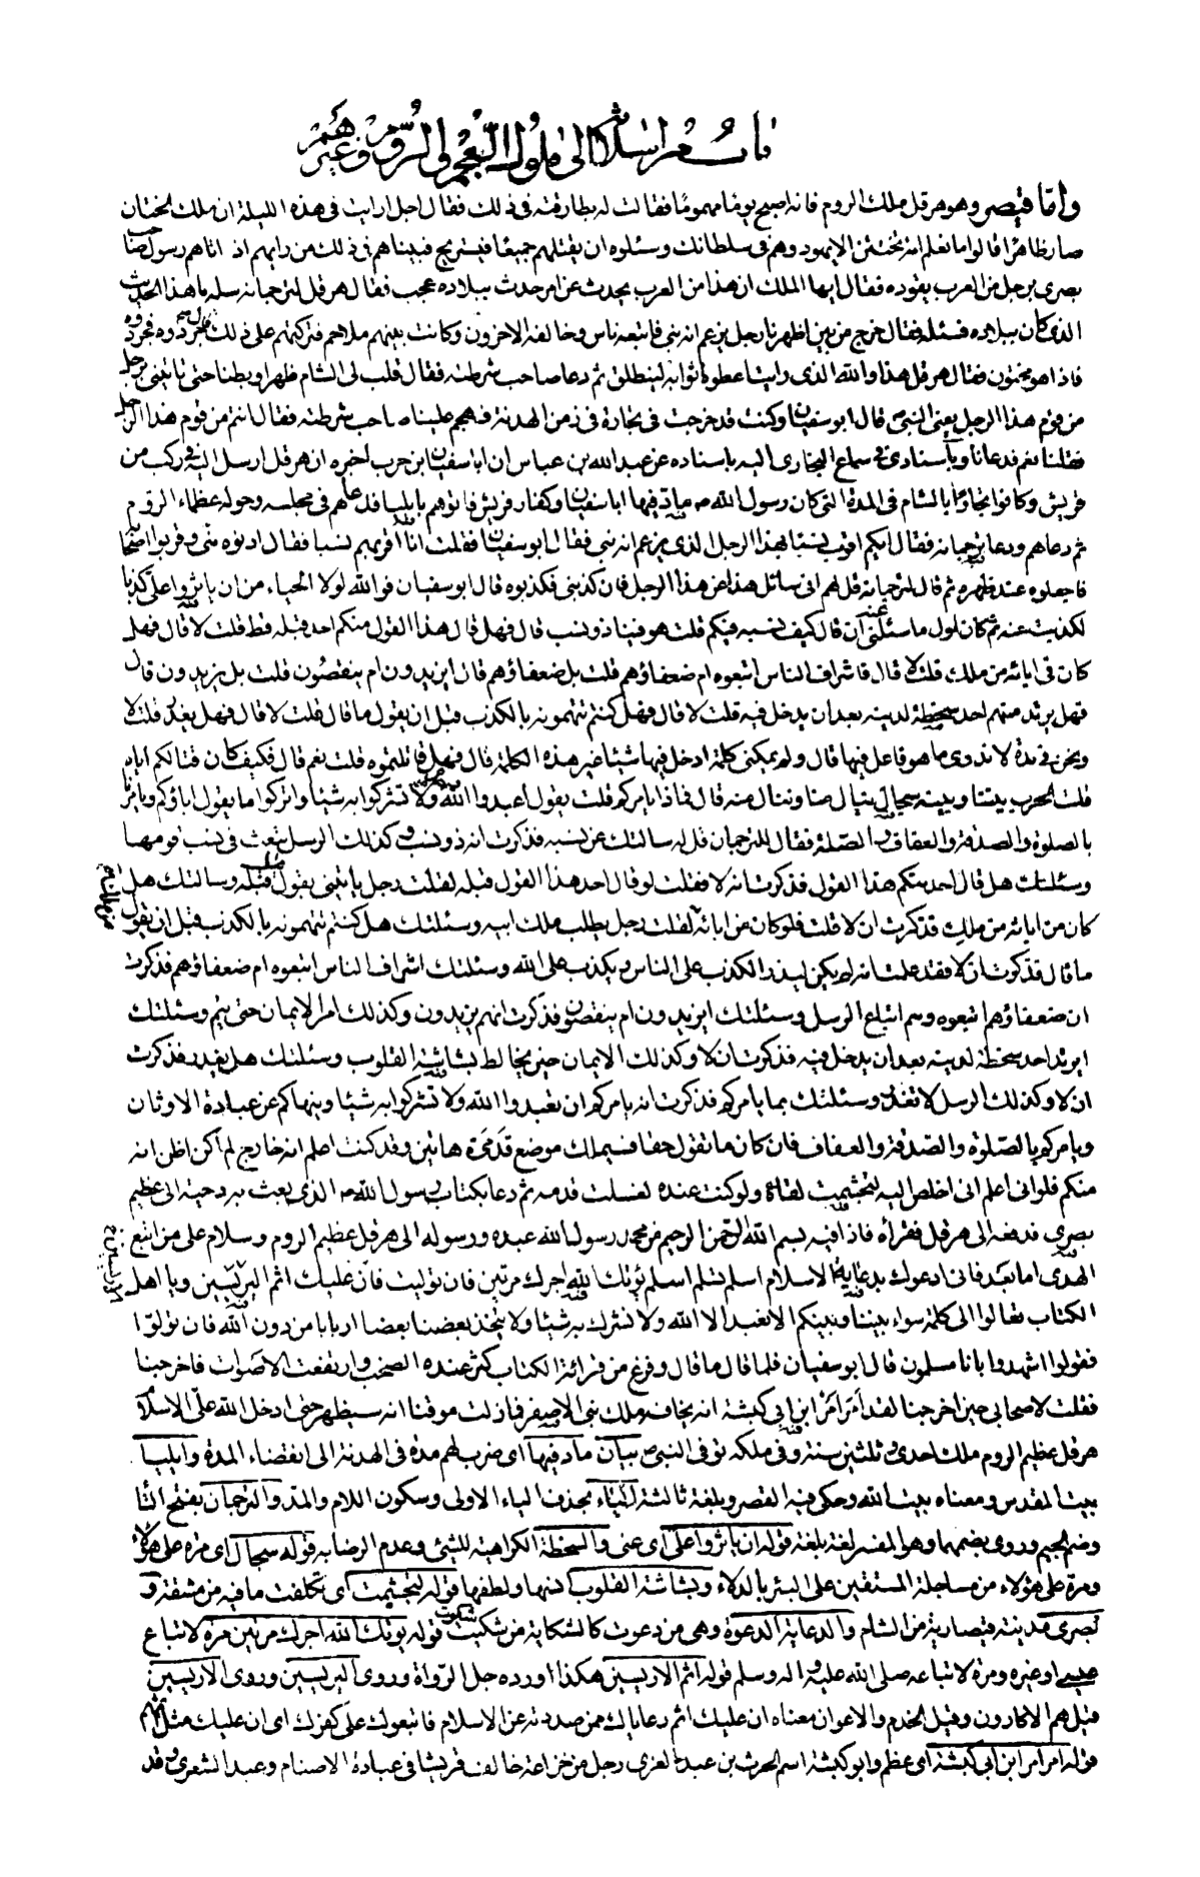 باب بعث رسالاته الى ملوك العجم والروم وغيرهم
وامّا قيصر وهو هرقل ملك الروم فانه اصبح يوما مهموما فقالت له بطارقته فى ذلك فقال اجل ارايت فى هذه الليلة ان ملك الختان
صار ظاهرا قالوا ما نعلم امة تختتن الا يهود وهم فى سلطانك وسئلوه ان يقتلهم جميعا فيستريح فبيناهم فى ذلك من رايهم اذ اتاهم رسول صاحب
بصرى برجل من العرب يقوده فقال ايها الملك ان هذا من العرب يحدث عن امر حدث ببلاده عجب فقال هرقل لترجمانه سله ما هذا الحديث
الذى كان ببلاده فسئله فقال خرج من بين اظهرنا رجل يزعم انه نبى فاتبعه ناس وخالفه الاخرون وكانت بينهم ملاحم فتركتهم على ذلك فقال جردوه فجردوه
فاذا هو مختون فقال هرقل هذا والله الذى رايت اعطوه اثوابه لينطلق ثم دعا صاحب شرطته فقال قلب لى الشام ظهرا وبطنا حتى تاتينى برجل
من قوم هذا الرجل يعنى النبى ص قال ابو سفيان وكنت قد خرجت فى تجارة فى زمن الهدنة فهجم علينا صاحب شرطته فقال انتم من قوم هذا الرجل
فقلنا نعم فدعانا وباسنادى فى سماع البخارى اليه باسناده عن عبد الله بن عباس ان ابا سفيان ابن حرب اخبره ان هرقل ارسل اليه فى ركب من
قريش وكانوا تجارا بالشام فى المدة التى كان رسول الله ص ماد فيها ابا سفيان وكفار قريش فاتوهم بايليا فدعاهم فى مجلسه وحوله عظماء الروم
ثم دعاهم ودعا ترجمانه فقال ايكم اقرب نسبا بهذا الرجل الذى يزعم انه نبى فقال ابو سفيان فقلت انا اقربهم نسبا فقال ادنوه منى وقربوا اصحابه
فاجعلوه عند ظهره ثم قال لترجمانه قل لهم انى سائل هذا عن هذا الرجل فان كذبنى فكذبوه قال ابو سفيان فوالله لولا الحياء من ان ياثروا على كذبا
لكذبت عنه ثم كان اول ما سئلنى عنه ان قال كيف نسبه فيكم قلت هو فينا ذو نسب قال فهل قال هذا القول منكم احد قبله قط قلت لا قال فهل
كان فى ابائه من ملك قلت لا قال فاشراف الناس اتبعوه ام ضعفاؤهم قلت بل ضعفاؤهم قال ايزيدون ام ينقصون قلت بل يزيدون قال
فهل يرتد منهم احد سخطة لدينه بعد ان يدخل فيه قلت لا قال فهل كنتم تتهمونه بالكذب قبل ان يقول ما قال قلت لا قال فهل يغدر قلت لا
ونحن فى مدة لا ندرى ما هو فاعل فيها قال ولم يمكنى كلمة ادخل فيها شيئا غير هذه الكلمة قال فهل قاتلتموه قلت نعم قال فكيف كان قتالكم اياه
قلت الحرب بيننا وبينه سجال ينال منا وننال منه قال فماذا يامركم قلت يقول اعبدوا الله وحده ولا تشركوا به شيئا واتركوا ما يقول اباؤكم ويامرنا
بالصلوة والصدقة والعفاف والصلة فقال للترجمان قل له سالتك عن نسبه فذكرت انه ذو نسب وكذلك الرسل تبعث فى نسب قومها
وسئلتك هل قال احد منكم هذا القول فذكرت ان لا فقلت لو قال احد هذا القول قبله لقلت رجل ياتسى بقول قيل قبله وسالتك هل
كان من ابائه من ملك فذكرت ان لا قلت فلو كان من ابائه لقلت رجل يطلب ملك ابيه وسئلتك هل كنتم تتهمونه بالكذب قبل ان يقول
ما قال فذكرت ان لا فقد علمت انه لم يكن ليذر الكذب على الناس ويكذب على الله وسئلتك اشراف الناس اتبعوه ام ضعفاؤهم فذكرت
ان ضعفاؤهم اتبعوه وهم اتباع الرسل وسئلتك ايزيدون ام ينقصون فذكرت انهم يزيدون وكذلك امر الايمان حتى يتم وسئلتك
ايرتد احد سخطة لدينه بعد ان يدخل فيه فذكرت ان لا وكذلك الايمان حين يخالط بشاشته القلوب وسئلتك هل يغدر فذكرت
ان لا وكذلك الرسل لا تغدر وسئلتك بما يامركم فذكرت انه يامركم ان تعبدوا الله ولا تشركوا به شيئا وينهاكم عن عبادة الاوثان
ويامركم بالصلوة والصدقة والعفاف فان كان ما تقول حقا فسيملك موضع قدمى هاتين وقد كنت اعلم انه خارج لم اكن اظن انه
منكم فلو انى اعلم انى اخلص اليه لتجشمت لقاءه ولو كنت عنده لغسلت قدمه ثم دعا بكتاب رسول الله ص الذى بعث به دحية الى عظيم
بصرى فدفعه الى هرقل فقراه فاذا فيه بسم الله الرحمن الرحيم من محمد رسول الله عبده ورسوله الى هرقل عظيم الروم وسلام على من اتبع
الهدى اما بعد فانى ادعوك بدعاية الاسلام اسلم تسلم اسلم يؤتك الله اجرك مرتين فان توليت فان عليك اثم اليريسين ويا اهل
الكتاب تعالوا الى كلمة سواء بيننا وبينكم الا نعبد الا الله ولا نشرك به شيئا ولا يتخذ بعضنا بعضا اربابا من دون الله فان تولوا
فقولوا اشهدوا بانا مسلمون قال ابو سفيان فلما قال ما قال وفرغ من قرائة الكتاب كثر عنده الصخب وارتفعت الاصوات فاخرجنا
فقلت لاصحابى حين اخرجنا لقد امر امر ابن ابى كبشة انه يخافه ملك بنى الاصفر فما زلت موقنا انه سيظهر حتى ادخل الله على الاسلام
هرقل عظيم الروم ملك احدى وثلثين سنة وفى ملكه توفى النبى ص بيان ماد فيها اى ضرب لهم مدة فى الهدنة الى انقضاء المدة وايليا
بيت المقدس ومعناه بيت الله وحكى فيه القصر وبلغة ثالثة الياء بحذف الياء الاولى وسكون اللام والمد والترجمان بفتح التا
وضم الجيم وروى بضمهما وهو المفسر لغة بلغة قوله ان ياثروا على اى عنى والسخطة الكراهية للشيئ وعدم الرضا به قوله سجال اى مرة على هؤلاء
ومرة على هؤلاء من مساجلة المستقين على البئر بالدلاء وبشاشة القلوب انسها ولطفها قوله لتجشمت اى تكلفت ما فيه من مشقة و
بصرى مدينة قيصارية من الشام والدعاية الدعوة وهى من دعوت كالشكاية من شكيت شكوت قوله يؤتك الله اجرك مرتين مرة لاتباع
عيسى او غيره ومرة لاتباعه صلى الله عليه واله وسلم قوله اثم الاريسين هكذا اورده جل الرواة وروى اليريسين وروى الاريسيين
قيل هم الاكارون وقيل الخدم والاعوان معناه ان عليك اثم رعاياك ممن صددته عن الاسلام فاتبعوك على كفرك اى ان عليك مثل اثمهم
قوله امر امر ابن ابى كبشة اى عظم وابو كبشة اسم الحرث بن عبد العزى رجل من خزاعة خالف قريشا فى عبادة الاصنام وعبد الشعرى وقد